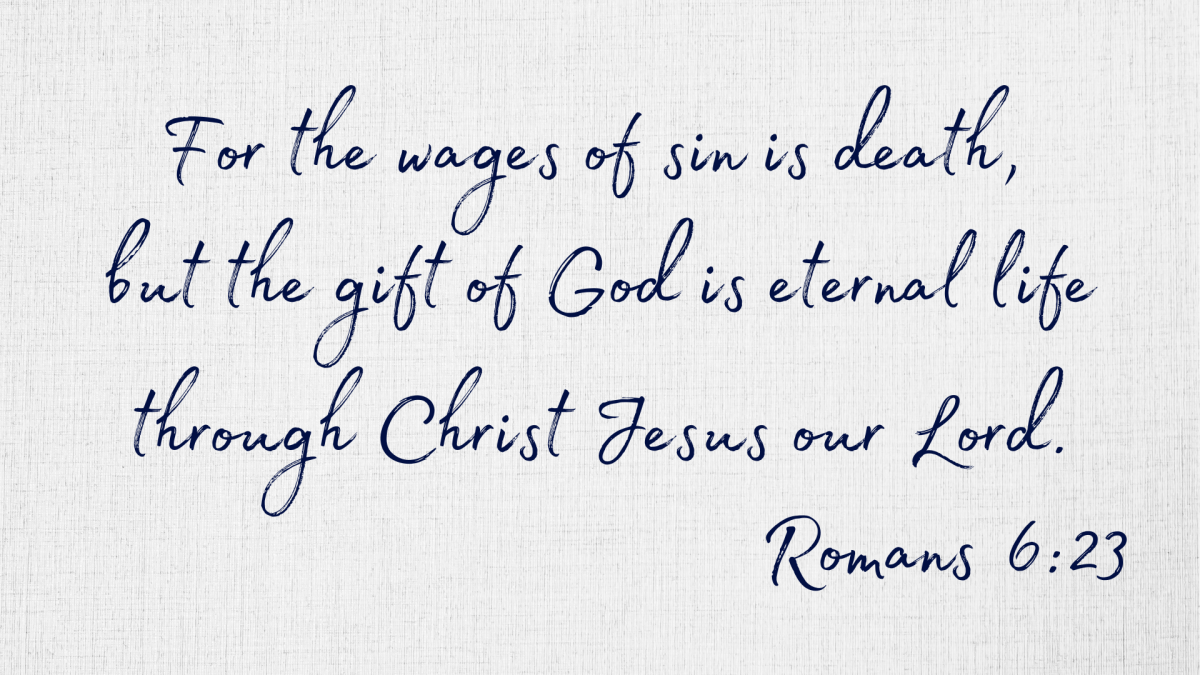 For the wages of sin is death,
but the gift of God is eternal life
through Christ Jesus our Lord.
Romans 6:23